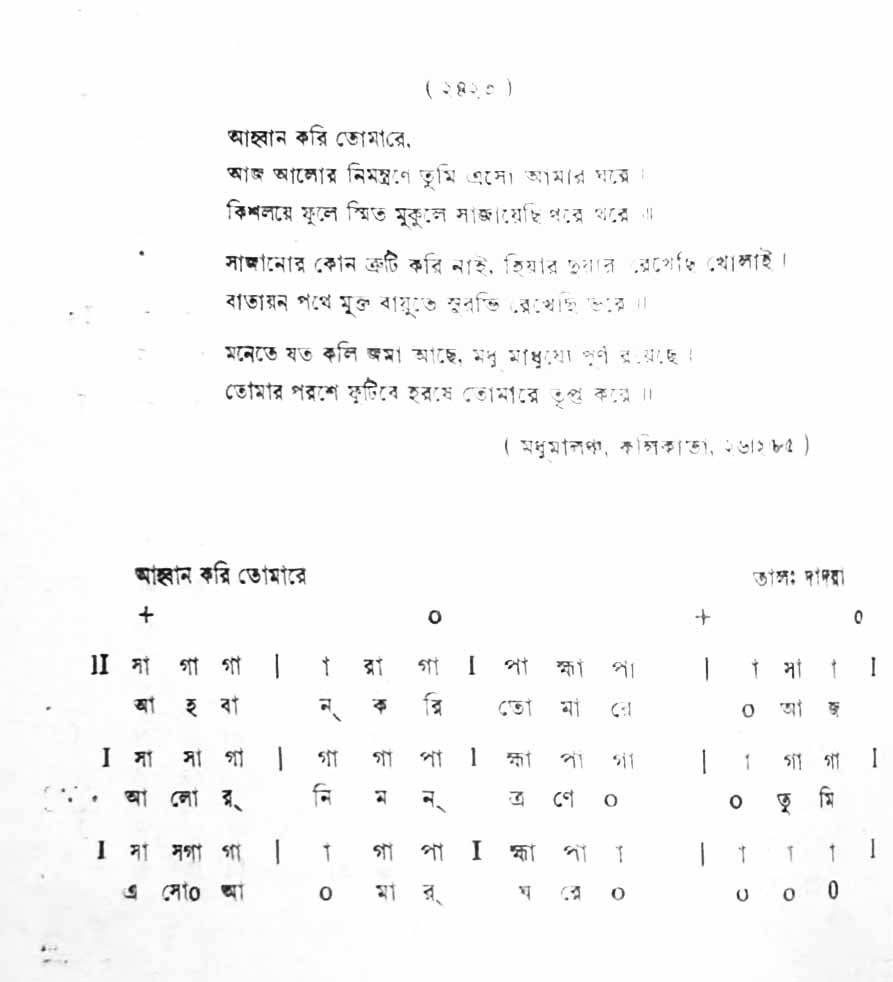 ( ২৪২৩ )
আহ্বান করি তোমারে,
আজ আলোর নিমন্ত্রণে তুমি এসো আমার ঘরে ।
কিশলয়ে ফুলে স্মিত মুকুলে সাজায়েছি থরে থরে ॥
সাজানোর কোন ত্রুটি করি নাই, হিয়ার দুয়ার রেখেছি খোলাই ।
বাতায়ন পথে মুক্ত বায়ুতে সুরভি রেখেছি ভরে ॥
মনেতে যত কলি জমা আছে, মধু মাধুর্যে পূর্ণ রয়েছে ।
তোমার পরশে ফুটিবে হরষে তোমারে তৃপ্ত করে ॥
( মধুমালঞ্চ, কলিকাতা, ২৬।২।৮৫ )
আহ্বান করি তোমারে তালঃ দাদরা
+ ০ + ০
II সা গা গা | া রা গা I পা হ্মা পা | া সা া I
আ হ বা ন্ ক রি তো মা রে ০ আ জ্
I সা সা গা | গা গা পা I হ্মা পা গা | া গা গা I
আ লো র্ নি ম ন্ ত্র ণে ০ ০ তু মি
I সা সগা গা | া গা পা I হ্মা পা া | া া া I
এ সো০ আ ০ মা র্ ঘ রে ০ ০ ০ ০